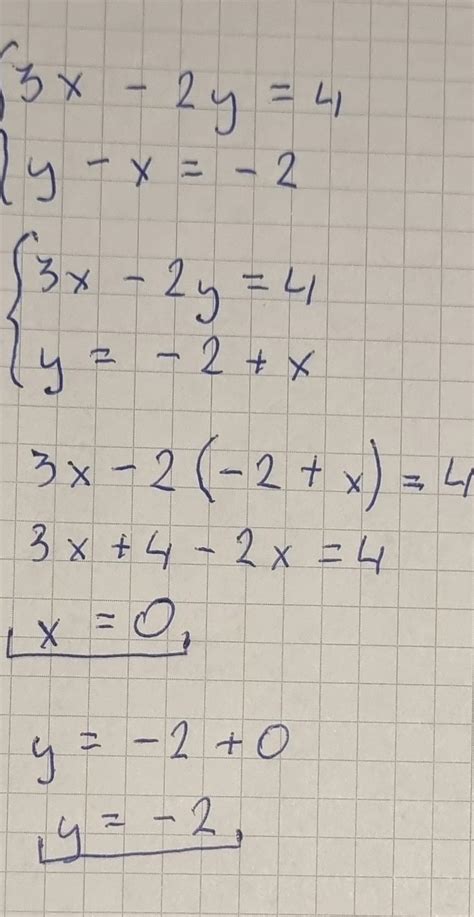 3x - 2y = 4
y - x = -2
3x - 2y = 4
y = -2 + x
3x - 2(-2 + x) = 4
3x + 4 - 2x = 4
x = 0
y = -2 + 0
y = -2